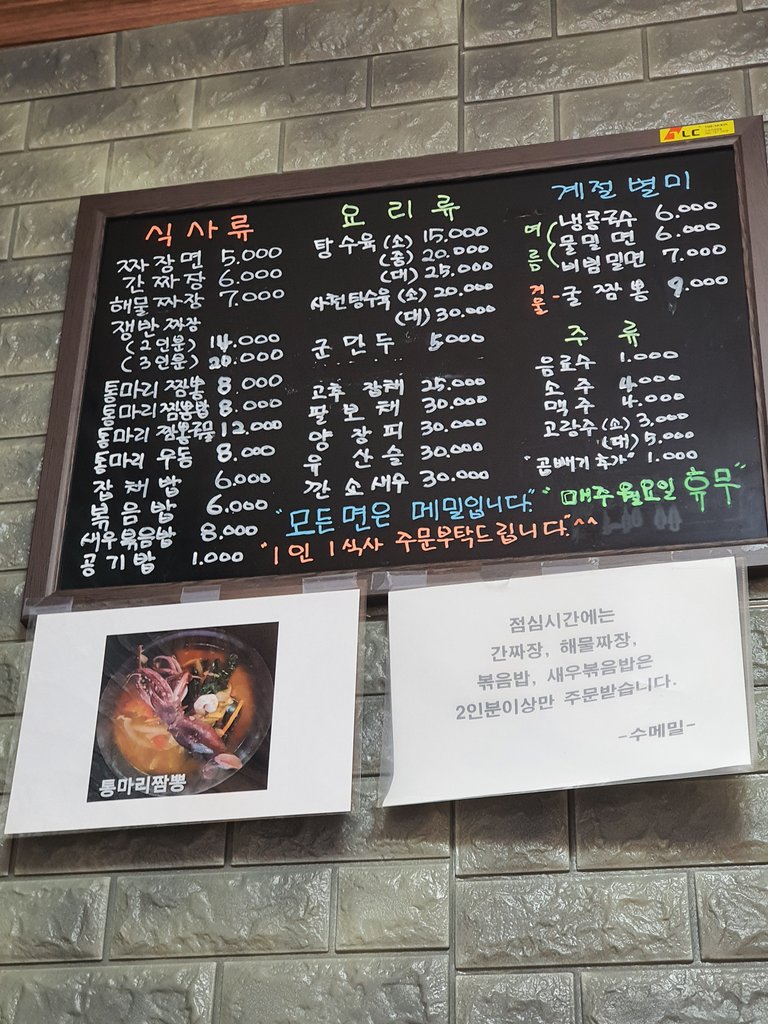 LC
식사류
짜장면 5.000
간짜장 6.000
해물짜장 7.000
쟁반짜장
(2인분) 14.000
(3인분) 20.000
통마리짬뽕 8.000
통마리짬뽕밥 8.000
통마리 12.000
통마리우동 8.000
잡채밥 6.000
볶음밥 6.000
새우볶음밥 8.000
공기밥 1.000
요리류
탕수육(소) 15.000
(중) 20.000
(대) 25.000
사천탕수육(소) 20.000
(대) 30.000
군만두 5000
고추잡채 25.000
팔보채 30.000
양장피 30.000
유산슬 30.000
깐소새우 30.000
계절별미
여름
냉콩국수 6.000
물밀면 6.000
비빔밀면 7.000
겨울-굴짬뽕 9.000
주류
음료수 1.000
소주 4000
맥주 4.000
고량주(소) 3,000
(대) 5.000
"곱빼기추가" 1.000
"모든면은 메밀입니다."
"매주월요일 휴무"
"1인 1식사 주문부탁드립니다"^^
통마리짬뽕
점심시간에는
간짜장, 해물짜장,
볶음밥, 새우볶음밥은
2인분이상만 주문받습니다.
-수메밀-